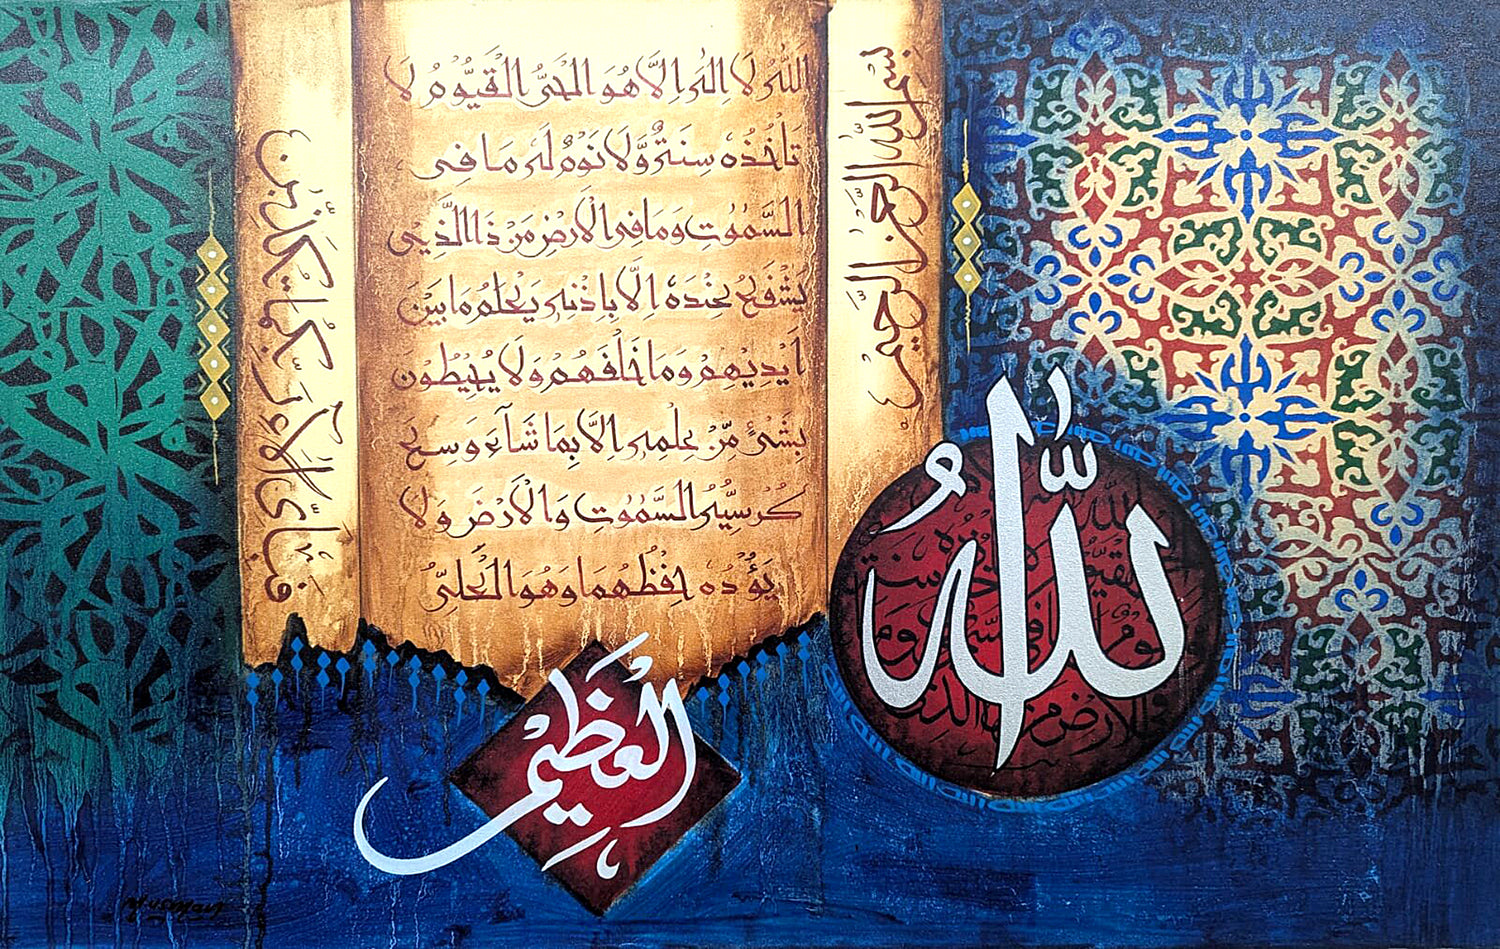 بِسْمِ اللّٰهِ الرَّحْمٰنِ الرَّحِيْمِ
اَللّٰهُ لَا اِلٰهَ اِلَّا هُوَ الْحَىُّ الْقَيُّوْمُ لَا
تَاْخُذُهٗ سِنَةٌ وَّلَا نَوْمٌ لَهٗ مَا فِى
السَّمٰوٰتِ وَمَا فِى الْاَرْضِ مَنْ ذَا الَّذِىْ
يَشْفَعُ عِنْدَهٗ اِلَّا بِاِذْنِهٖ يَعْلَمُ مَا بَيْنَ
اَيْدِيْهِمْ وَمَا خَلْفَهُمْ وَلَا يُحِيْطُوْنَ
بِشَىْءٍ مِّنْ عِلْمِهٖ اِلَّا بِمَا شَآءَ وَسِعَ
كُرْسِيُّهُ السَّمٰوٰتِ وَالْاَرْضَ وَلَا
يَؤُدُهٗ حِفْظُهُمَا وَهُوَ الْعَلِىُّ
الْعَظِيْمُ
فَبِاَىِّ اٰلَآءِ رَبِّكُمَا تُكَذِّبٰنِ
اللّٰه
M. USMAN